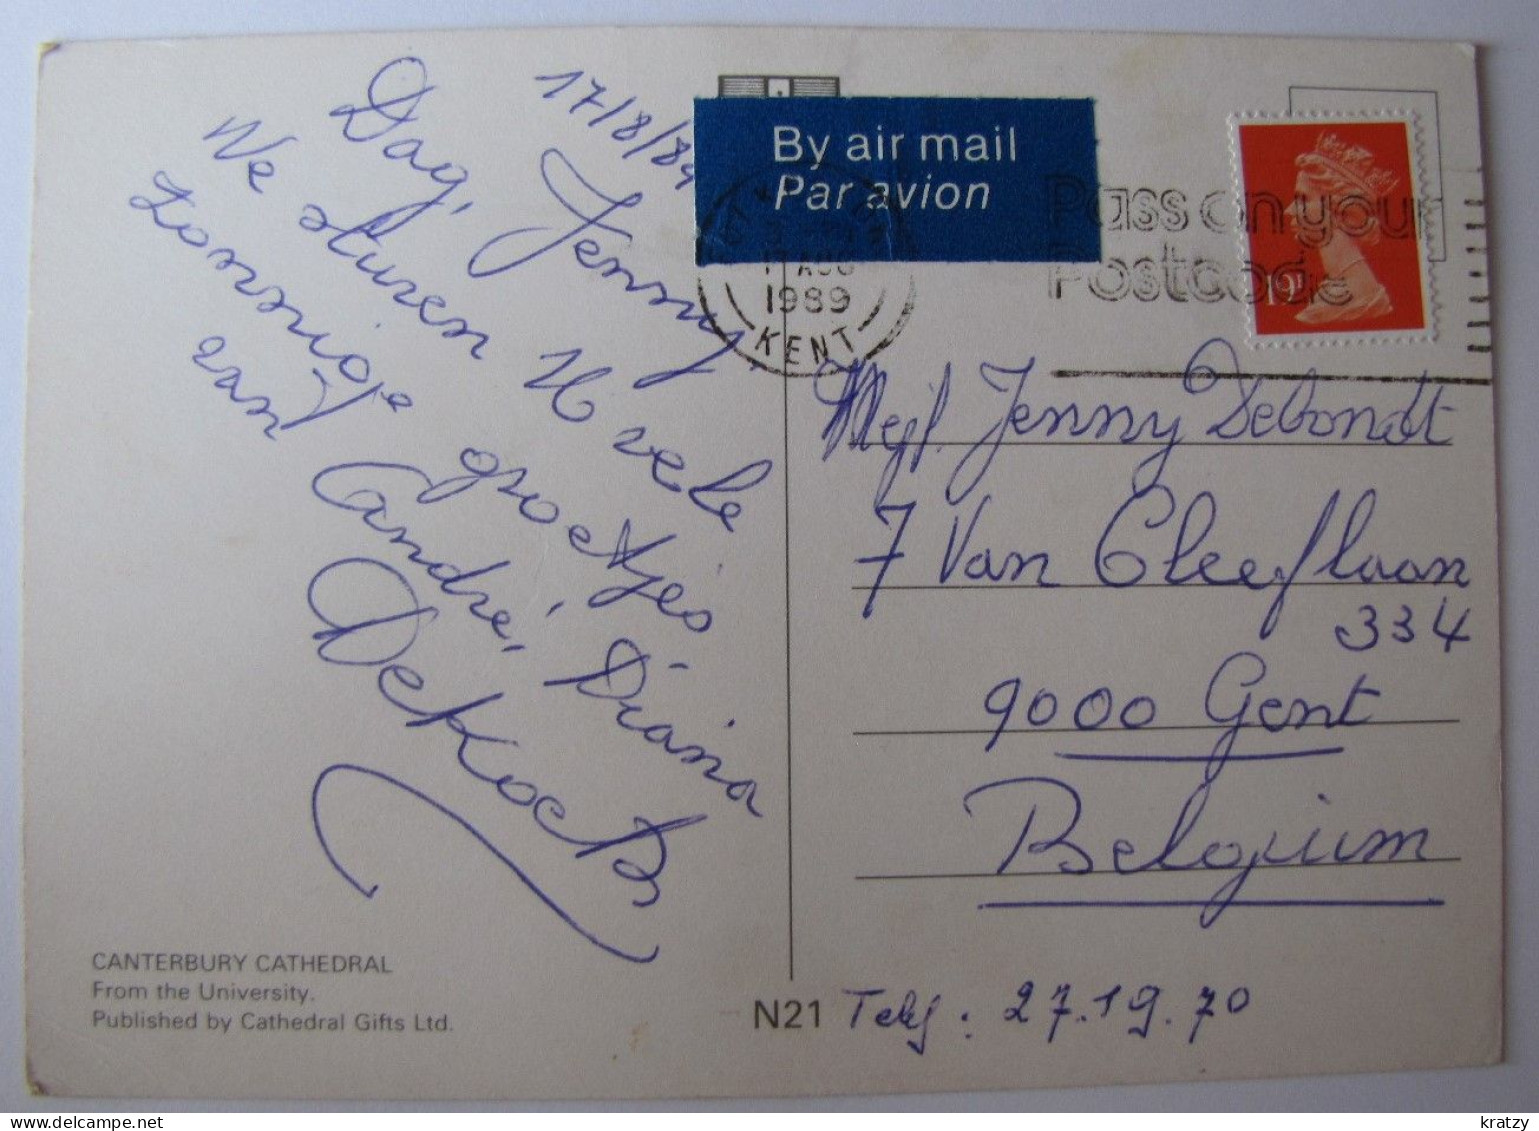 17/8/89
Dag, Jenny,
We sturen U vele
zonnige groetjes
van André, Diana
De Kock
CANTERBURY CATHEDRAL
From the University.
Published by Cathedral Gifts Ltd.
N21
By air mail
Par avion
17 AUG
1989
KENT
Pass on your
Postcode
19P
Mejf. Jenny Debondt
7 Van Cleeflaan
334
9000 Gent
Belgium
Telf: 27.19.70
kratzy